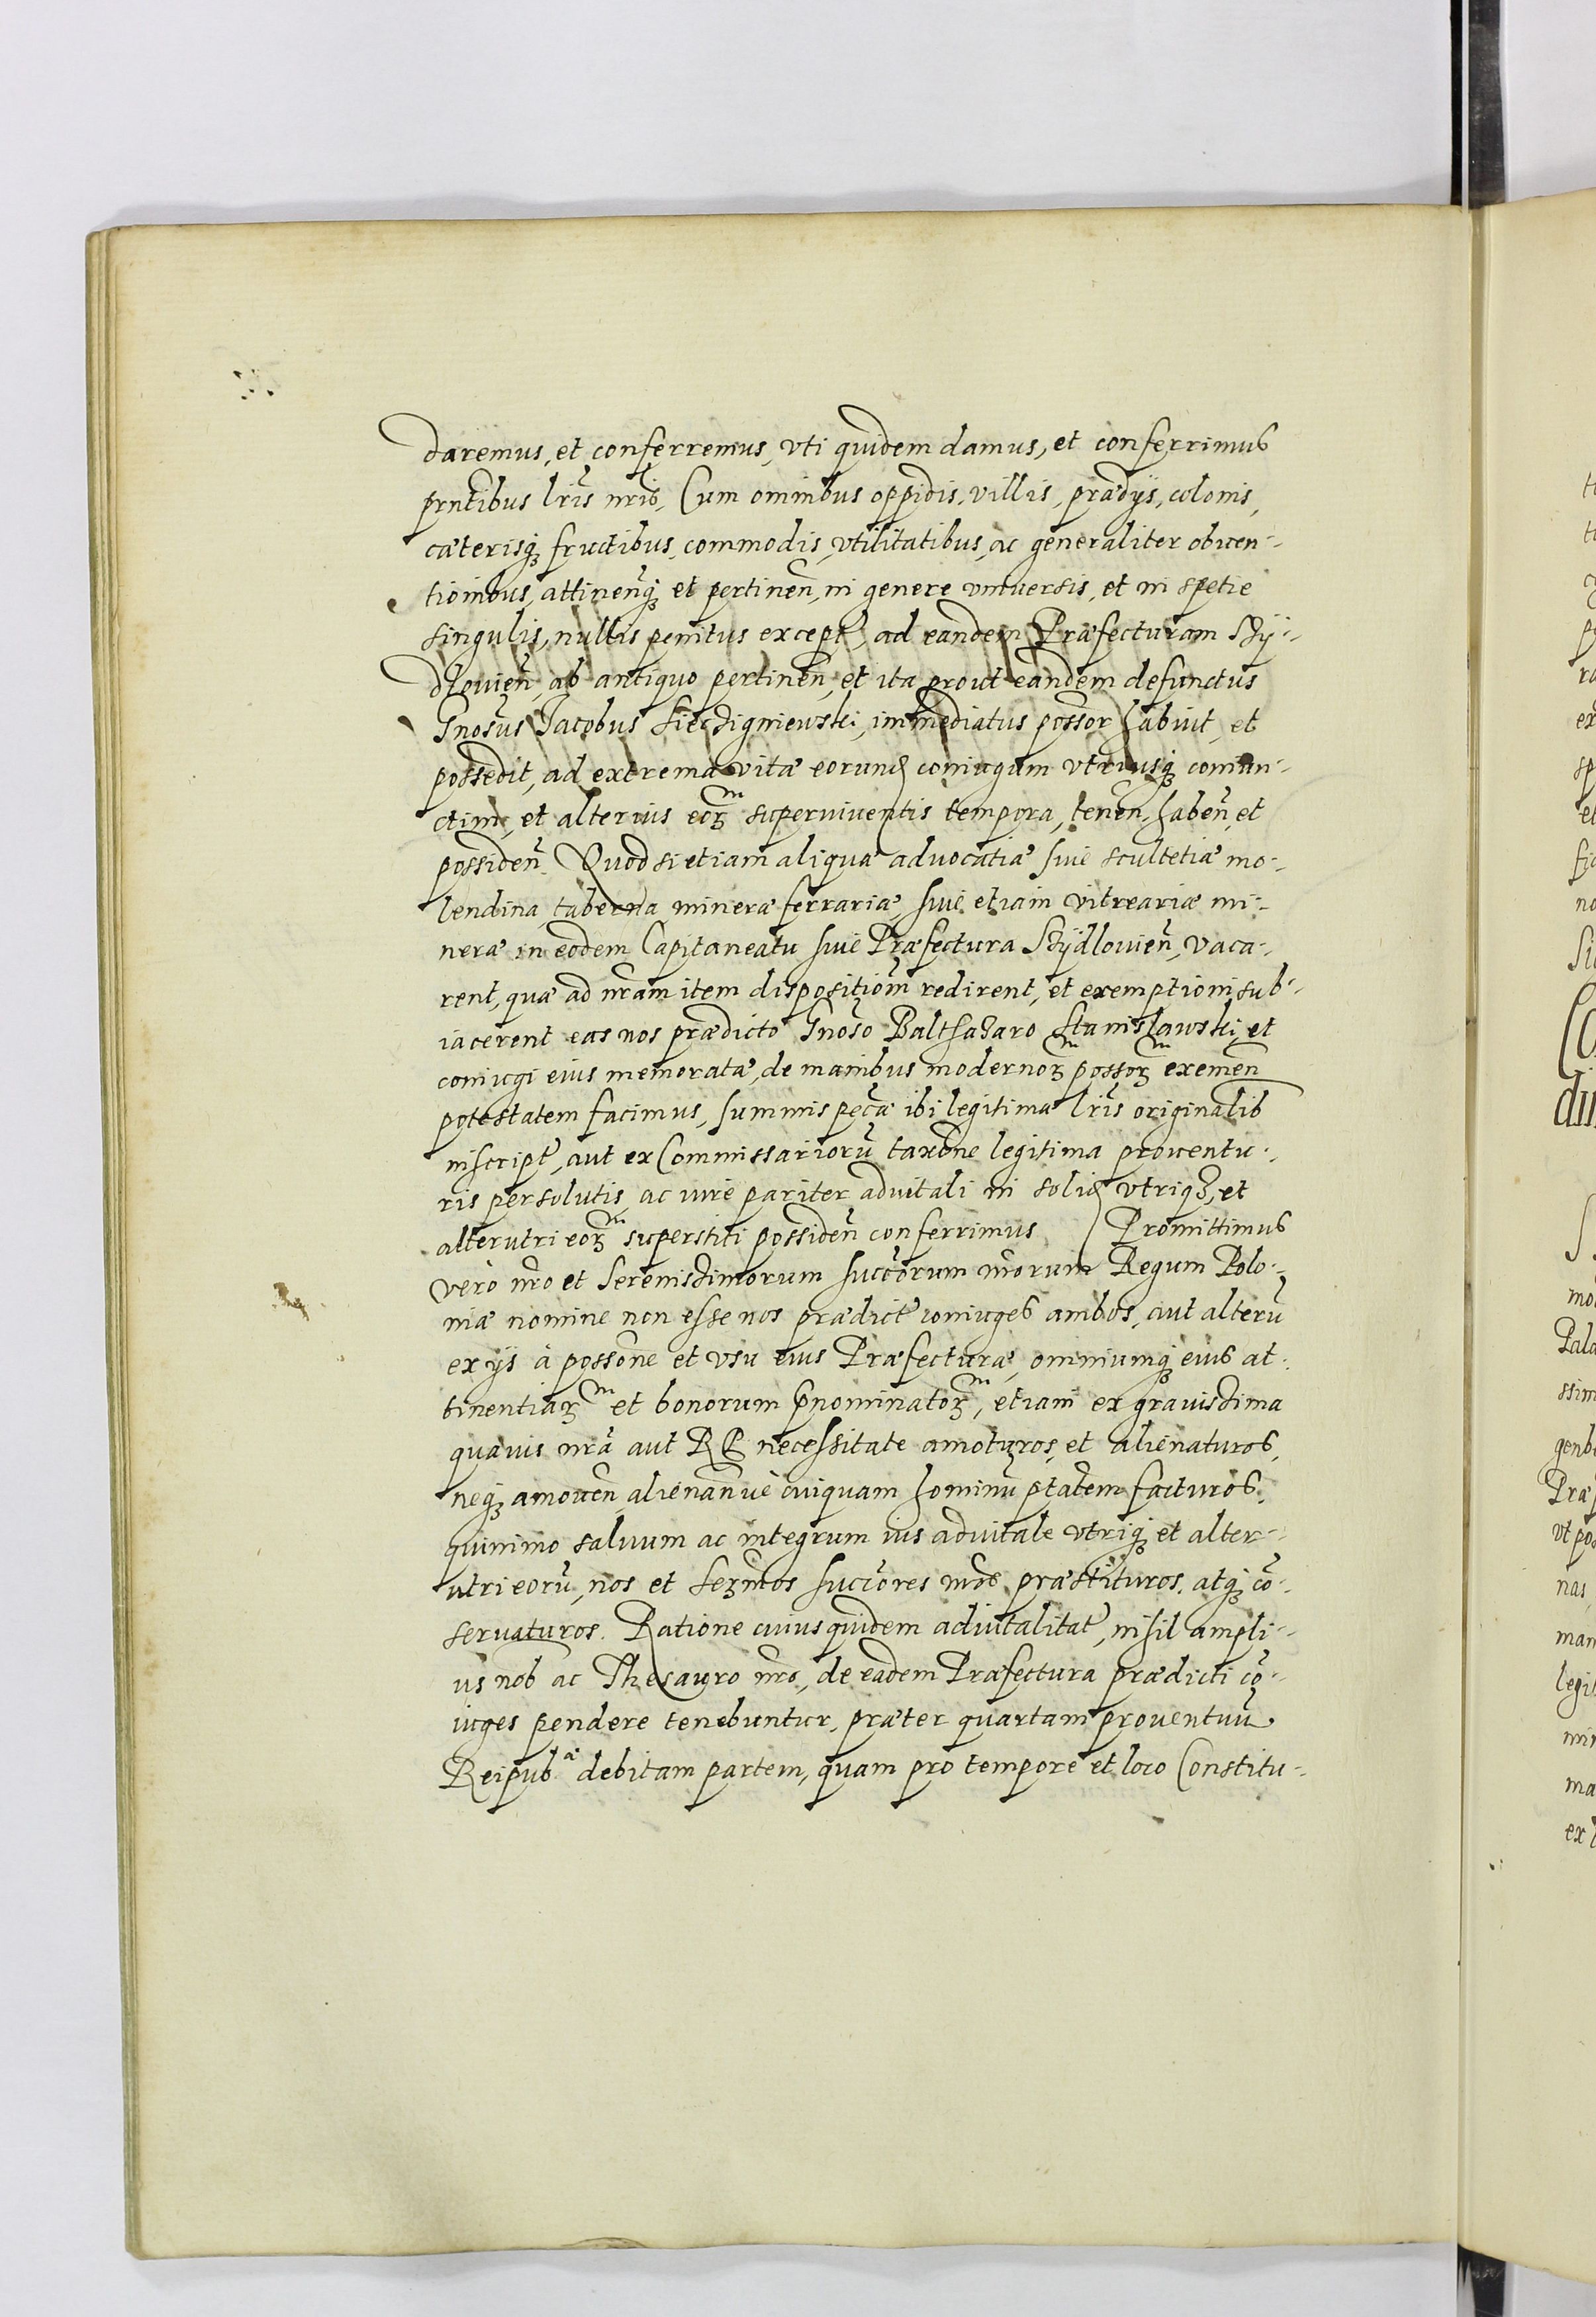 daremus, et conferremus, vti quidem damus, et conferrimus
prntibus lris nris, Cum omnibus oppidis, villis, prædijs, colonis,
cæterisq fructibus, commodis, vtilitatibus, ac generaliter obven-
tionibus, attinenq et pertinen, in genere vniuersis, et in spetie
singulis, nullis penitus except, ad eandem Præfecturam Szy-
dlouien, ab antiquo pertinen, et ita prout eandem defunctus
Gnosus Jacobus Sieczigniewski, immediatus possor habuit, et
possedit, ad extrema vitæ eorund coniugum vtriusq coniun-
ctim, et alterius eorum superviventis tempora, tenen, haben, et
possiden. Quod si etiam aliquæ advocatiæ siue scultetiæ mo-
lendina, taberna, mineræ ferrariæ, siue etiam vitreariæ mi-
neræ in eodem Capitaneatu siue Præfectura Szÿdlouien, vaca-
rent, quæ ad nram item dispositiom redirent, et exemptioni sub-
iacerent eas nos prædicto Gnoso Balthazaro Stanislawski, et
coniugi eius memoratæ, de manibus modernorum possorum eximen
potestatem facimus, summis pecæ ibi legitima lris originalib
inscript, aut ex Commissarioru taxone legitima prouentu-
ris persolutis, ac iure pariter aduitali in solid vtriq, et
alterutri eorum superstiti possiden conferrimus Promittimus
vero nro et Serenissimorum succorum nrorum Regum Polo-
niæ nomine non esse nos prædict coniuges ambos, aut alteru
ex ijs à possone et vsu eius Præfecturæ, omniumq eius at-
tinentiarum et bonorum pnominatorum, etiam ex gravissima
quavis nra aut R P necessitate amoturos, et alienaturos,
neq amouen, alienanuè cuiquam hominu ptatem facturos,
quinimo saluum ac integrum ius aduitale vtriq et alter-
utri eoru, nos et Sermos succores nros præstituros, atq co-
servaturos. Ratione cuius quidem aduitalitat, nihil ampli-
us nob ac Thesauro nro, de eadem Præfectura prædicti co-
iuges pendere tenebuntur, præter quartam prouentuu
Reipub.æ debitam partem, quam pro tempore et loco Constitu-